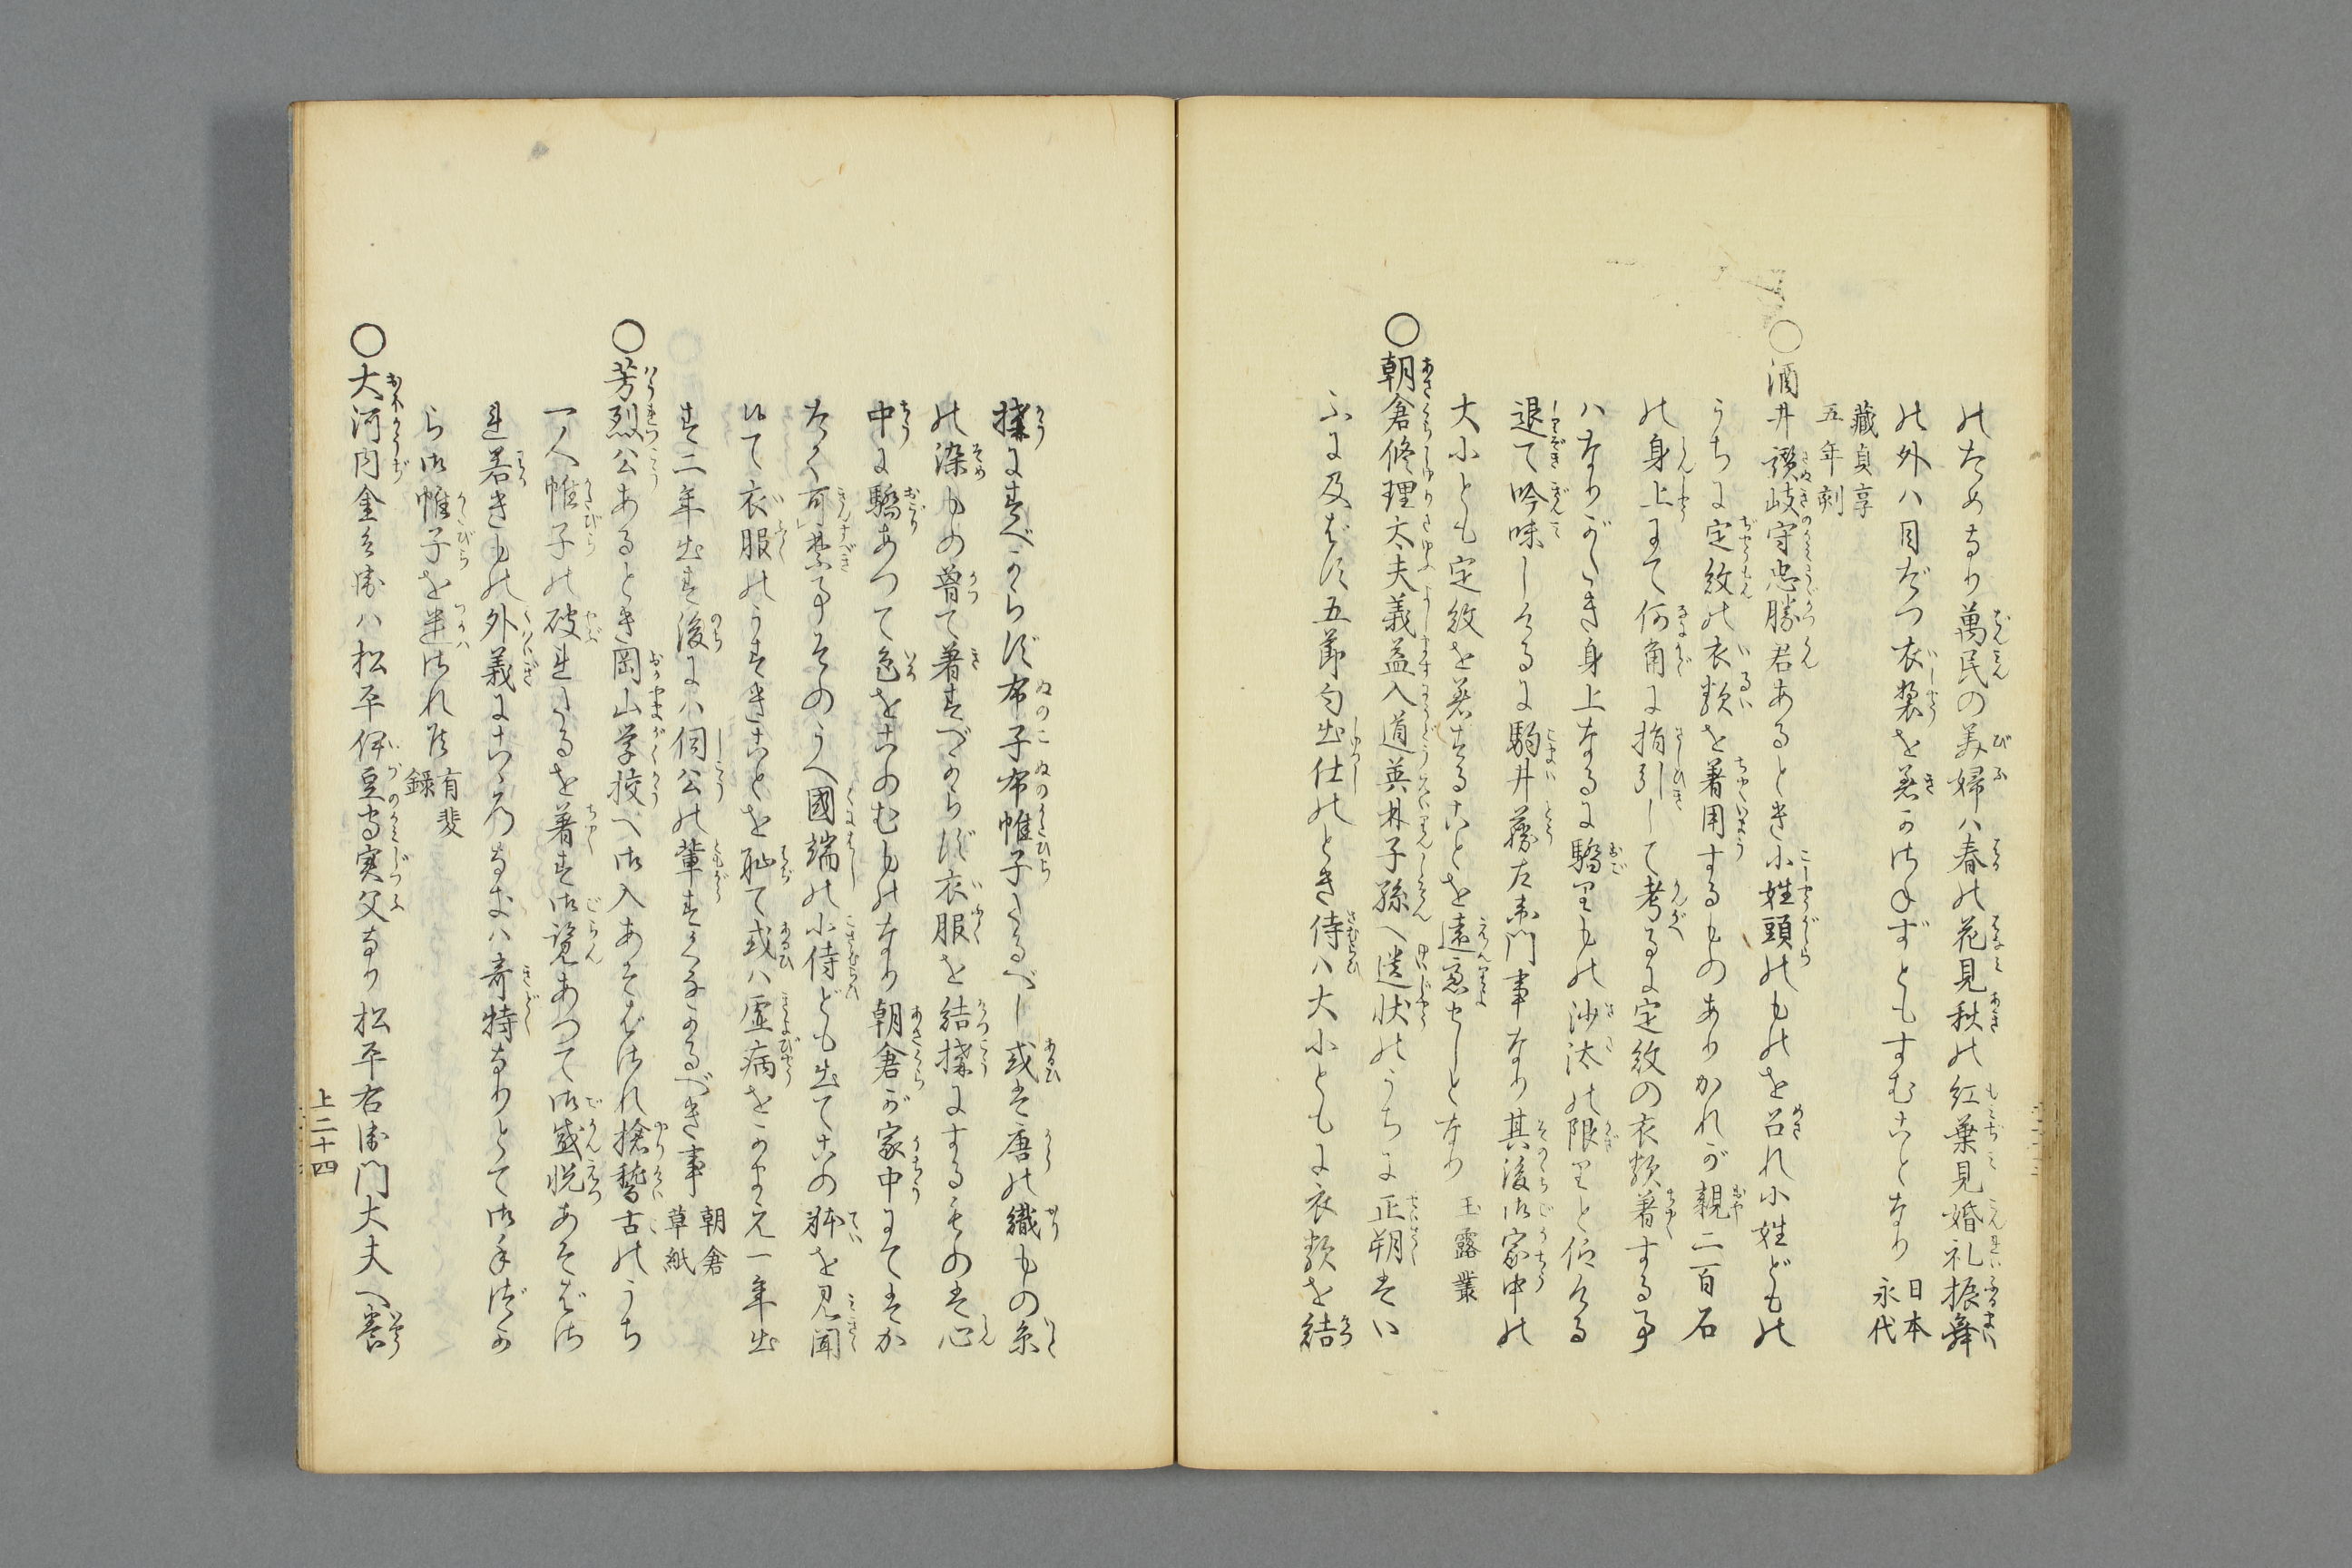 のためなり萬民の美婦ハ春の花見秋の紅葉見婚礼振舞
の外ハ目だつ衣裳を着かはねずともすむことなり 日本永代
藏貞享五年刻
○酒井讃岐守忠勝君あるとき小姓頭のものを召れ小姓どもの
うちに定紋の衣類を著用するものありかれが親二百石
の身上にて何角に指引して考るに定紋の衣類著する事
ハなりがたき身上なるに驕りもの沙汰の限りと仰らる
退て吟味しけるに駒井藤左衛門事なり其後御家中の
大小とも定紋を着することを遠慮せしとなり 玉露叢
○朝倉修理太夫義益入道英林子孫へ遺状のうちに正朔はい
ふに及ばず五節句出仕のとき侍ハ大小ともに衣類を結
構にすべからず布子布帷子たるべし或は唐の織もの糸
の染もの曽て著すべからず衣服を結構にするものは心
中に驕あつて色をこのむものなり朝倉が家中にてはか
たく可禁事そのうへ國端の小侍ども出てこの躰を見聞
して衣服のうすきことを恥て或ハ虚病をかまえ一年出
ず二年出ず後にハ伺公の輩すくなかるべき事 朝倉草紙
○芳烈公あるとき岡山学校へ御入あそばされ槍稽古のうち
一人帷子の破れたるを著す御覧あつて御感悦あそばさ
れ若きもの外義にかゝハらぬハ奇特なりとて御手づか
ら御帷子を進はれ候 有斐録
○大河内金兵衛ハ松平伊豆守実父なり松平右衛門大夫へ養
上二十四